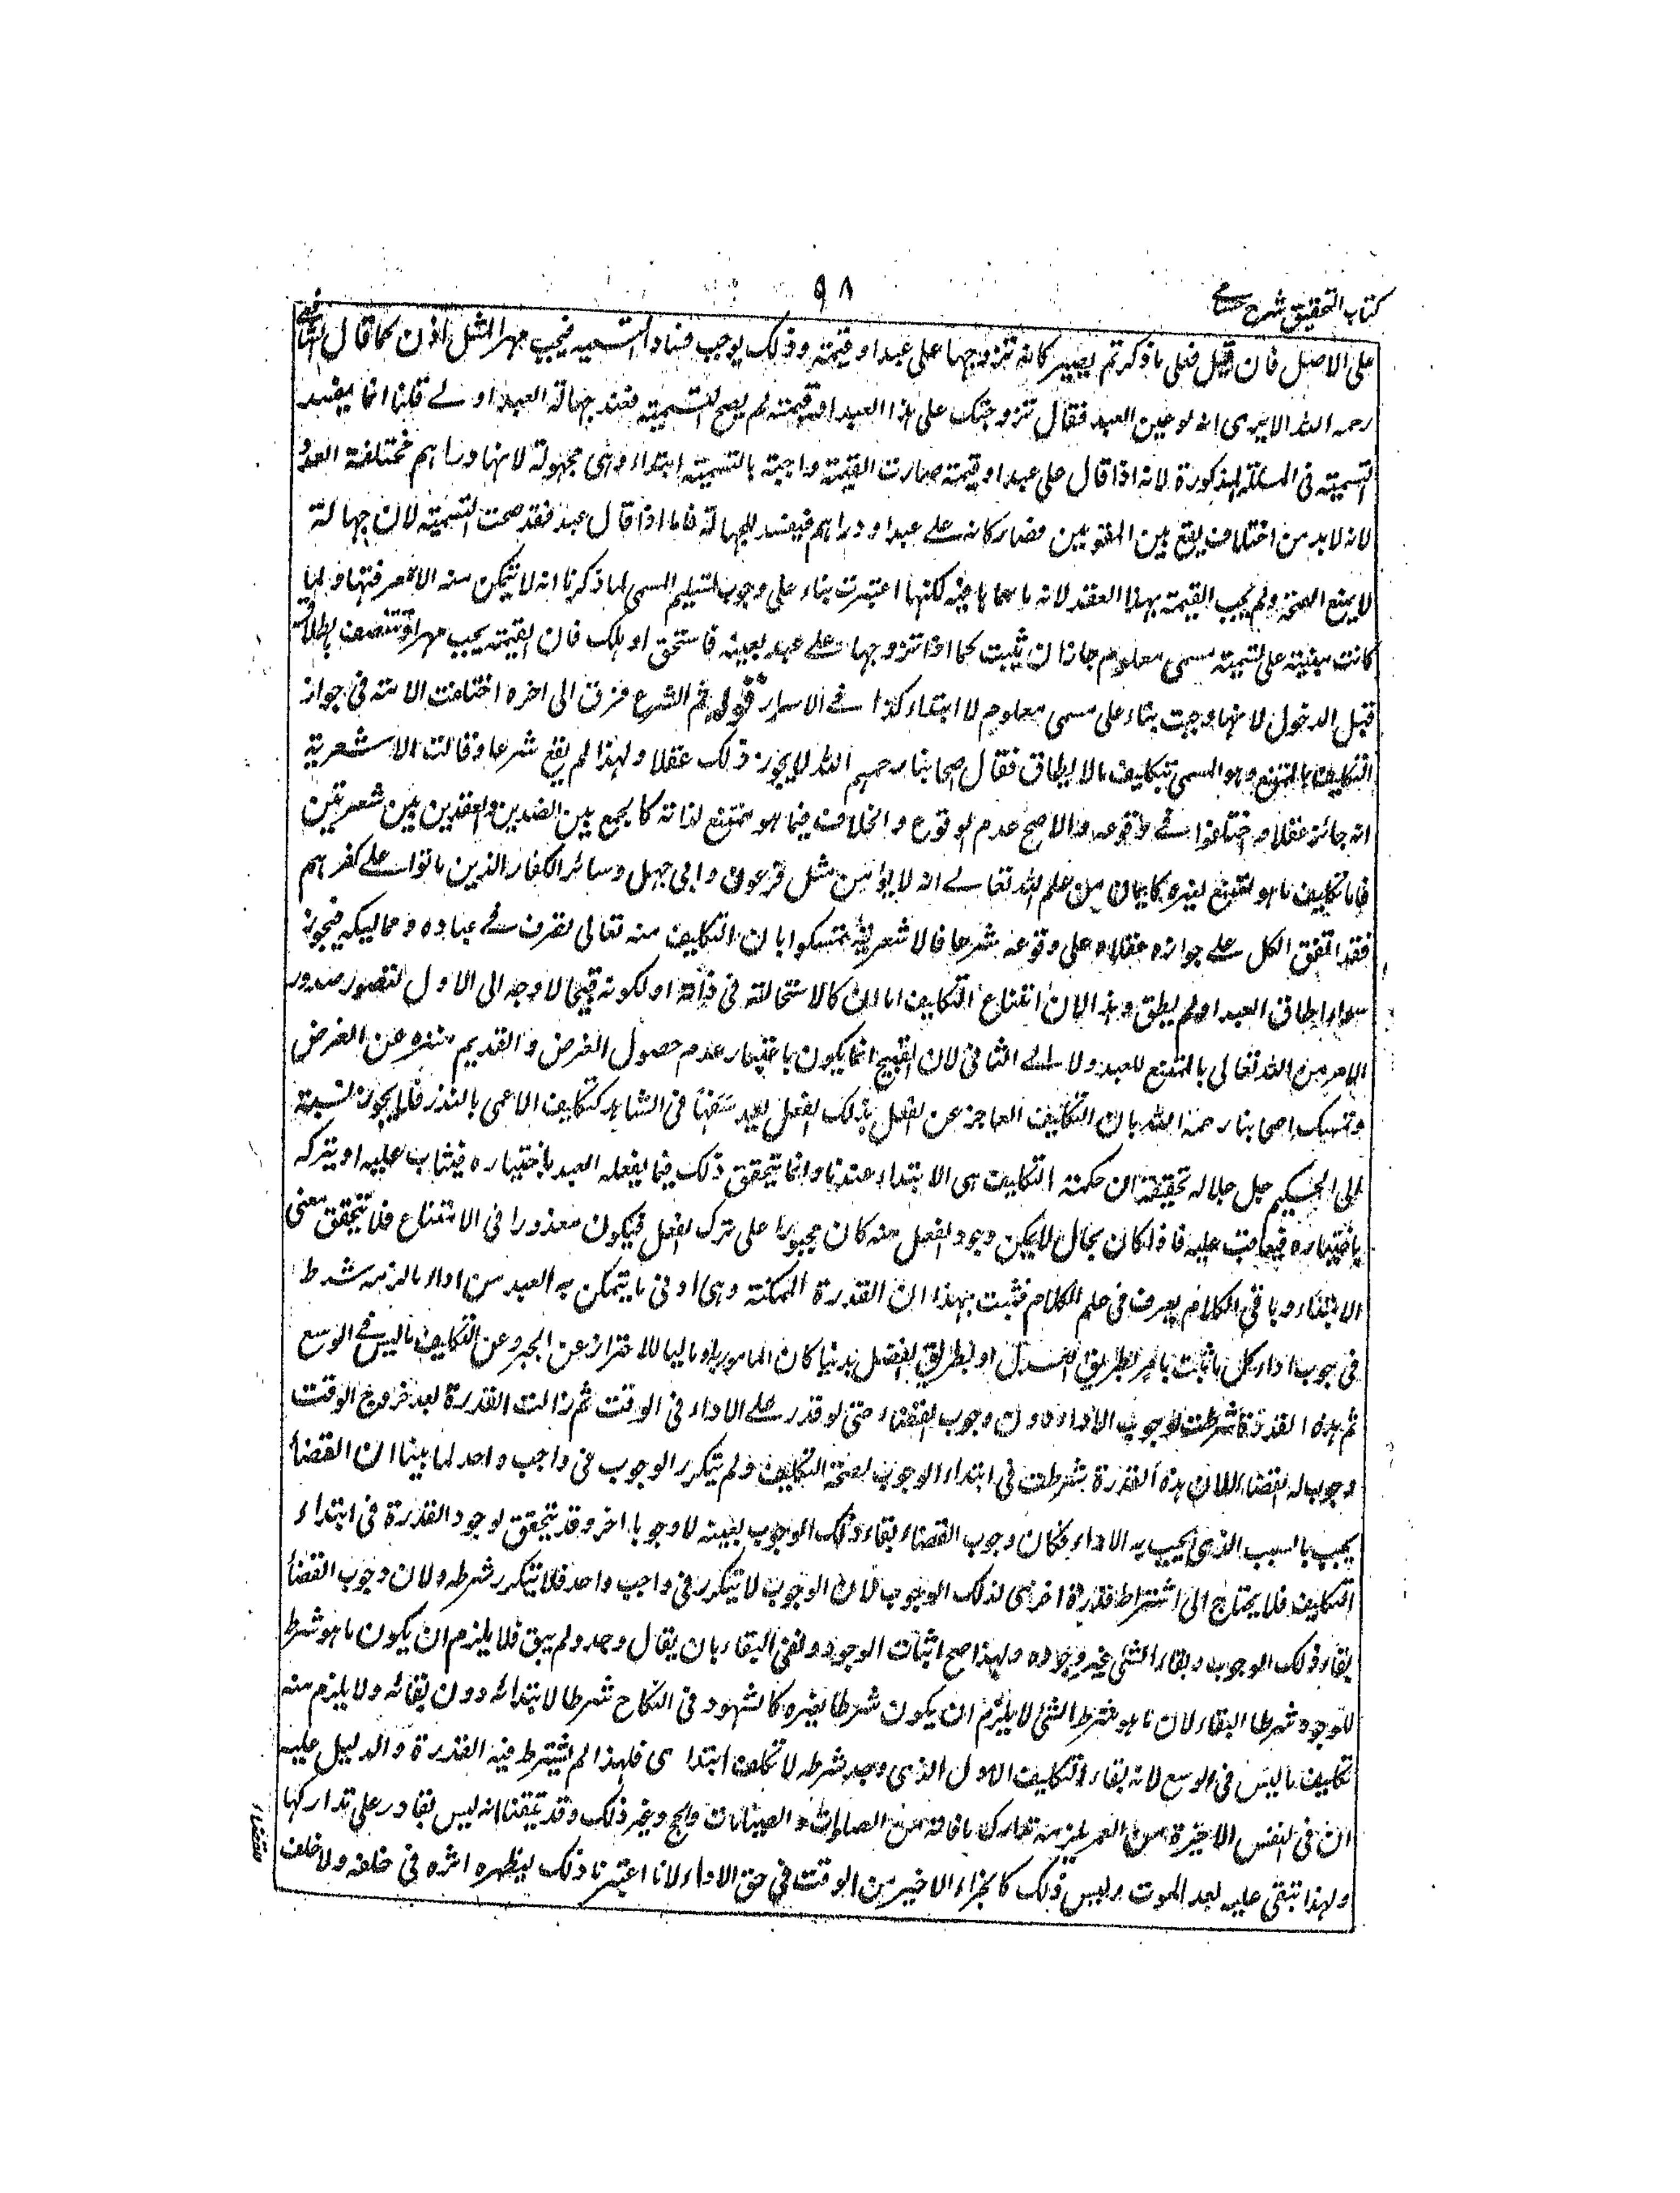 كتاب التحقيق شرح حسامى
٩٨
على الاصل فان قيل فعلى ما ذكرتم يصير كانه تزوجها على عبد او قيمة وذلك يوجب فساد التسميه فيجب مهر المثل اذن كما قال الشافعى
رحمه الله الا يرى انه لو عين العبد فقال تزوجتك على هذا العبد او قيمته لم يصح التسمية فعند جهالة العبد اولے قلنا انما يفسد
التسمية فى المسئلة المذكورة لانه اذا قال على عبد او قيمة صارت القيمة واجبة بالتسمية ابتداء وهى مجهولة لانها دراهم مختلفة العدد
لانه لا بد من اختلاف يقع بين المقومين فصار كانه علے عبد او دراهم فيفسد للجهالة فاما اذا قال عبد فقد صحت التسمية لان جهالة
لا يمنع الصحة ولم يجب القيمة بهذا العقد لانه ما سماها لكنها اعتبرت بناء على وجوب تسليم المسمى لما ذكرنا انه لا يتمكن منه الا بمعرفتها ولما
كانت مبنية على تسمية مسمى معلوم جاز ان يثبت كما اذا تزوجها علے عبد بعينه فاستحق او هلك فان القيمة يجب مهرا وتتنصف بالطلاق
قبل الدخول لانها وجبت بناء على مسمى معلوم لا ابتداء كذا فے الاسرار قوله ثم الشرع فرق الى اخره اختلفت الامة فى جواز
التكليف بالممتنع وهو المسمى بتكليف ما لا يطاق فقال اصحابنا رحمهم الله لا يجوز ذلك عقلا ولهذا لم يقع شرعا وقالت الاشعرية
انه جائز عقلا واختلفوا فے وقوعه والاصح عدم الوقوع والخلاف فيما هو ممتنع لذاته كالجمع بين الضدين والعقد بين شعرتين
فاما تكليف ما هو ممتنع لغيره كايمان من علم الله تعالے انه لا يؤمن مثل فرعون وابى جهل وسائر الكفار الذين ماتوا علے كفرهم
فقد اتفق الكل علے جوازه عقلا وعلى وقوعه شرعا فالاشعرية تمسكوا بان التكليف منه تعالى تصرف فے عباده ومماليكه فيجوز
سواء اطاق العبد او لم يطق وهذا لان امتناع التكليف اما ان كان لاستحالته فى ذاته او لكونه قبيحا لا وجه الى الاول لتصور صدور
الامر من الله تعالى بالممتنع للعبد ولا الے الثانى لان القبيح انما يكون باعتبار عدم حصول الغرض والقديم منزه عن الغرض
وتمسك اصحابنا رحمهم الله بان التكليف العاجز عن الفعل بذلك الفعل يعد سفها فى الشاهد كتكليف الاعمى بالنظر فلا يجوز نسبته
الى الحكيم جل جلاله تحقيقه ان حكمة التكليف هى الابتلاء عندنا وانما يتحقق ذلك فيما يفعله العبد باختياره فيثاب عليه او يتركه
باختياره فيعاقب عليه فاذا كان بحال لا يمكن وجود الفعل منه كان مجبورا على ترك الفعل فيكون معذورا فى الامتناع فلا يتحقق معنى
الابتلاء وباقى الكلام يعرف فى علم الكلام فثبت بهذا ان القدرة الممكنة وهى ادنى ما يتمكن به العبد من اداء ما لزمه شرط
فى وجوب اداء كل ما ثبت بالامر بطريق العدل او بطريق الفضل بدنيا كان المامور به او ماليا للاحتراز عن الجبر وعن التكليف ما ليس فے الوسع
ثم هذه القدرة شرطت لوجوب الاداء دون وجوب القضاء حتى لو قدر علے الاداء فى الوقت ثم زالت القدرة بعد خروج الوقت
وجوب القضاء لان هذه القدرة شرطت فى ابتداء الوجوب لصحة التكليف ولم يتكرر الوجوب فى واجب واحد لما بينا ان القضاء
يجب بالسبب الذى يجب به الاداء فكان وجوب القضاء بقاء ذلك الوجوب بعينه لا وجوبا اخر وقد تحقق لوجود القدرة فى ابتداء
التكليف فلا يحتاج الى اشتراط قدرة اخرى لذلك الوجوب لان الوجوب لا يتكرر فى واجب واحد فلا يتكرر شرطه ولان وجوب القضاء
بقاء ذلك الوجوب وبقاء الشئ غير وجوده ولهذا صح اثبات الوجود ونفى البقاء بان يقال وجد ولم يبق فلا يلزم ان يكون ما هو شرط
للوجود شرطا للبقاء لان ما هو شرط الشئ لا يلزم ان يكون شرطا لغيره كالشهود فى النكاح شرطا لابتدائه دون بقائه ولا يلزم منه
تكليف ما ليس فى الوسع لانه بقاء التكليف الاول الذى وجد شرطه لا تكليف ابتدائى فلهذا لم يشترط فيه القدرة والدليل عليه
ان فى النفس الاخيرة من العمر يلزمه تدارك ما فاته من الصلوات والصيامات والحج وغير ذلك وقد تيقنا انه ليس بقادر على تداركها
ولهذا تبقى عليه بعد الموت وليس ذلك كالجزء الاخير من الوقت فى حق الاداء لانا اعتبرنا ذلك ليظهر اثره فى خلفه ولا خلف
للقضاء